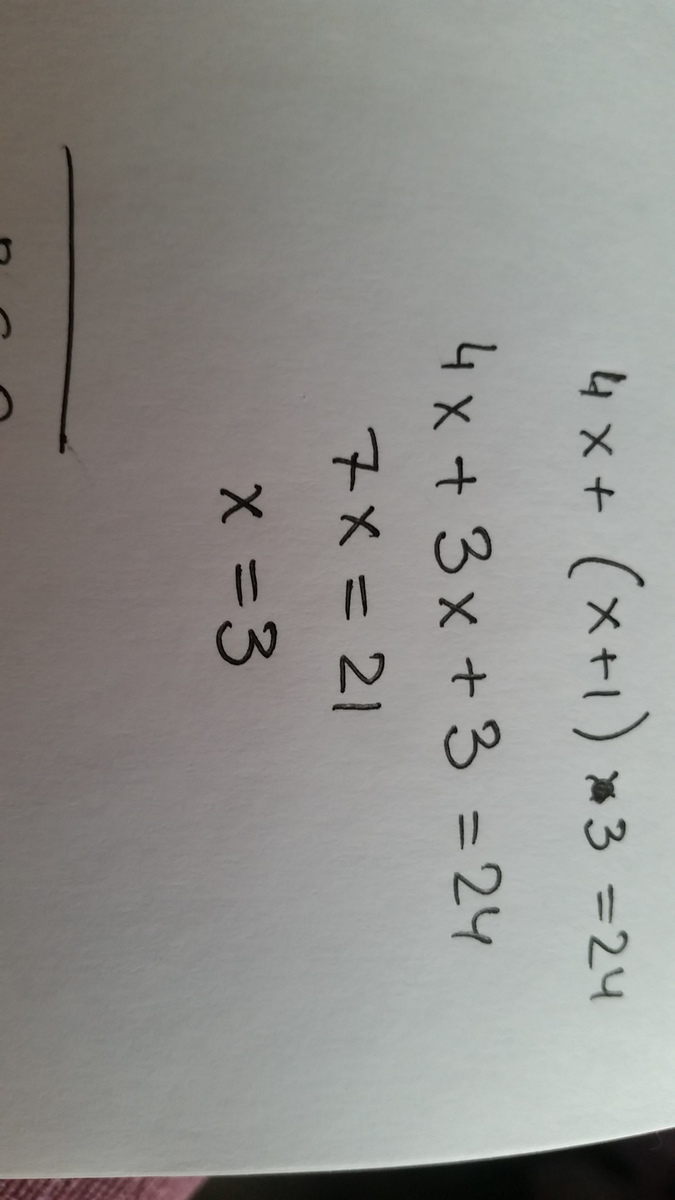 4x + (x+1) 3 = 24
4x + 3x + 3 = 24
7x = 21
x = 3